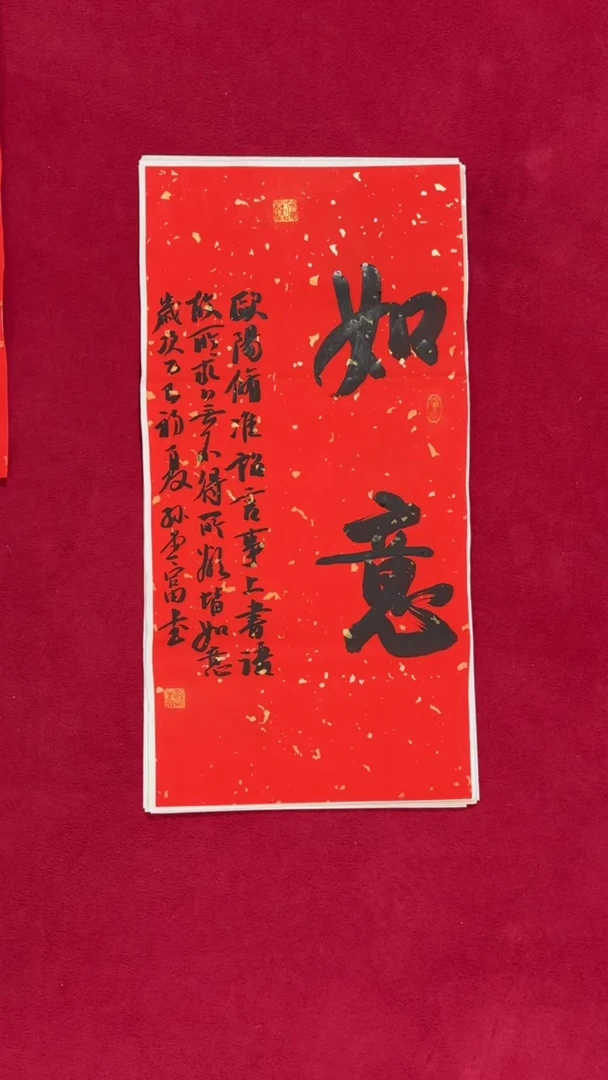 如意
歐陽脩准詔言事上書語
故所求必無不得所欲皆如意
歲次乙巳初夏孫孟富書